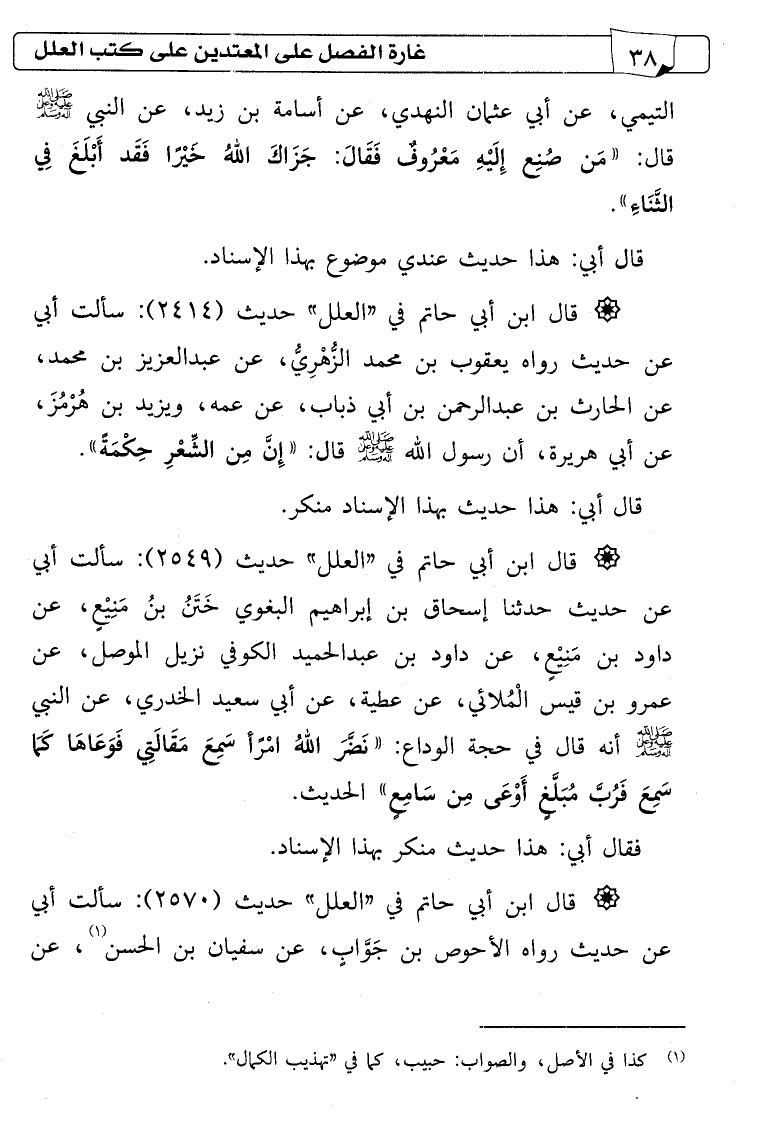 ٣٨ غارة الفصل على المعتدين على كتب العلل
التيمي، عن أبي عثمان النهدي، عن أسامة بن زيد، عن النبي ﷺ
قال: «مَن صُنِع إِلَيْهِ مَعْرُوفٌ فَقَالَ: جَزَاكَ اللهُ خَيْرًا فَقَد أَبْلَغَ فِي
الثَّنَاءِ».
قال أبي: هذا حديث عندي موضوع بهذا الإسناد.
۞ قال ابن أبي حاتم في «العلل» حديث (٢٤١٤): سألت أبي
عن حديث رواه يعقوب بن محمد الزُّهْرِيُّ، عن عبدالعزيز بن محمد،
عن الحارث بن عبدالرحمن بن أبي ذباب، عن عمه، ويزيد بن هُرْمُزَ،
عن أبي هريرة، أن رسول الله ﷺ قال: «إِنَّ مِن الشِّعْرِ حِكْمَةً».
قال أبي: هذا حديث بهذا الإسناد منكر.
۞ قال ابن أبي حاتم في «العلل» حديث (٢٥٤٩): سألت أبي
عن حديث حدثنا إسحاق بن إبراهيم البغوي خَتَنُ بنُ مَنِيْعٍ، عن
داود بن مَنِيْعٍ، عن داود بن عبدالحميد الكوفي نزيل الموصل، عن
عمرو بن قيس الْمُلائي، عن عطية، عن أبي سعيد الخدري، عن النبي
ﷺ أنه قال في حجة الوداع: «نَضَّرَ اللهُ امْرًأ سَمِعَ مَقَالَتِي فَوَعَاهَا كَمَا
سَمِعَ فَرُبَّ مُبَلَّغٍ أَوْعَى مِن سَامِعٍ» الحديث.
فقال أبي: هذا حديث منكر بهذا الإسناد.
۞ قال ابن أبي حاتم في «العلل» حديث (٢٥٧٠): سألت أبي
عن حديث رواه الأحوص بن جَوَّابٍ، عن سفيان بن الحسن(١)، عن
(١) كذا في الأصل، والصواب: حبيب، كما في «تهذيب الكمال».